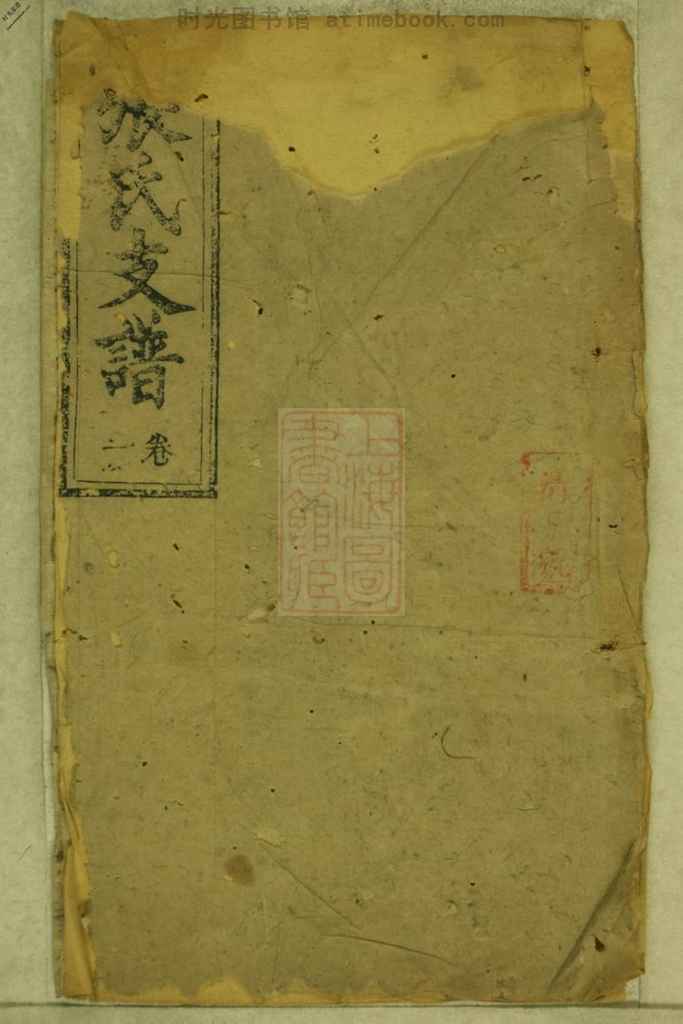 时光图书馆 atimebook.com
氏支譜
卷
二
上海圖
書館藏